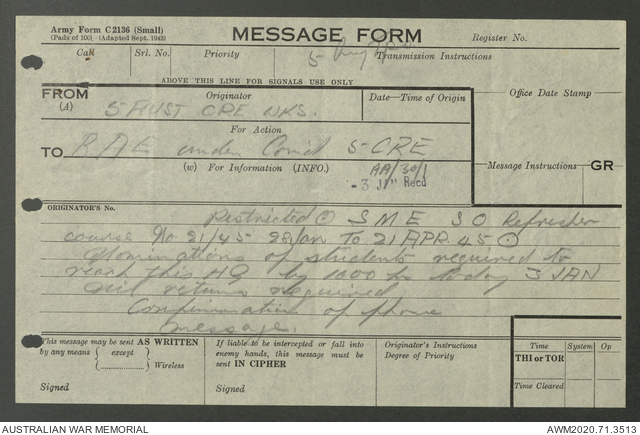 Army Form C 2136 (Small)
(Pads of 100). (Adapted Sept. 1943)
MESSAGE FORM
Register No.
Call Srl. No. Priority Transmission Instructions
5
ABOVE THIS LINE FOR SIGNALS USE ONLY
FROM Originator Date—Time of Origin Office Date Stamp
(A) 5 AUST CRE WKS.
For Action
TO RAE under Comd 5 CRE
(W) For Information (INFO.)
Message Instructions GR
AA/30/1
-3 Recd
ORIGINATOR'S No.
Restricted SME SO Refresher
course No 21/45 28 Jan To 21 APR 45
Nominations of students required to
reach this HQ by 1000 hrs today 3 JAN
Nil returns required
Confirmation of phone
message.
This message may be sent AS WRITTEN
by any means except
Wireless
Signed
If liable to be intercepted or fall into
enemy hands, this message must be
sent IN CIPHER
Signed
Originator's Instructions
Degree of Priority
Time System Op
THI or TOR
Time Cleared
AUSTRALIAN WAR MEMORIAL AWM2020.71.3513